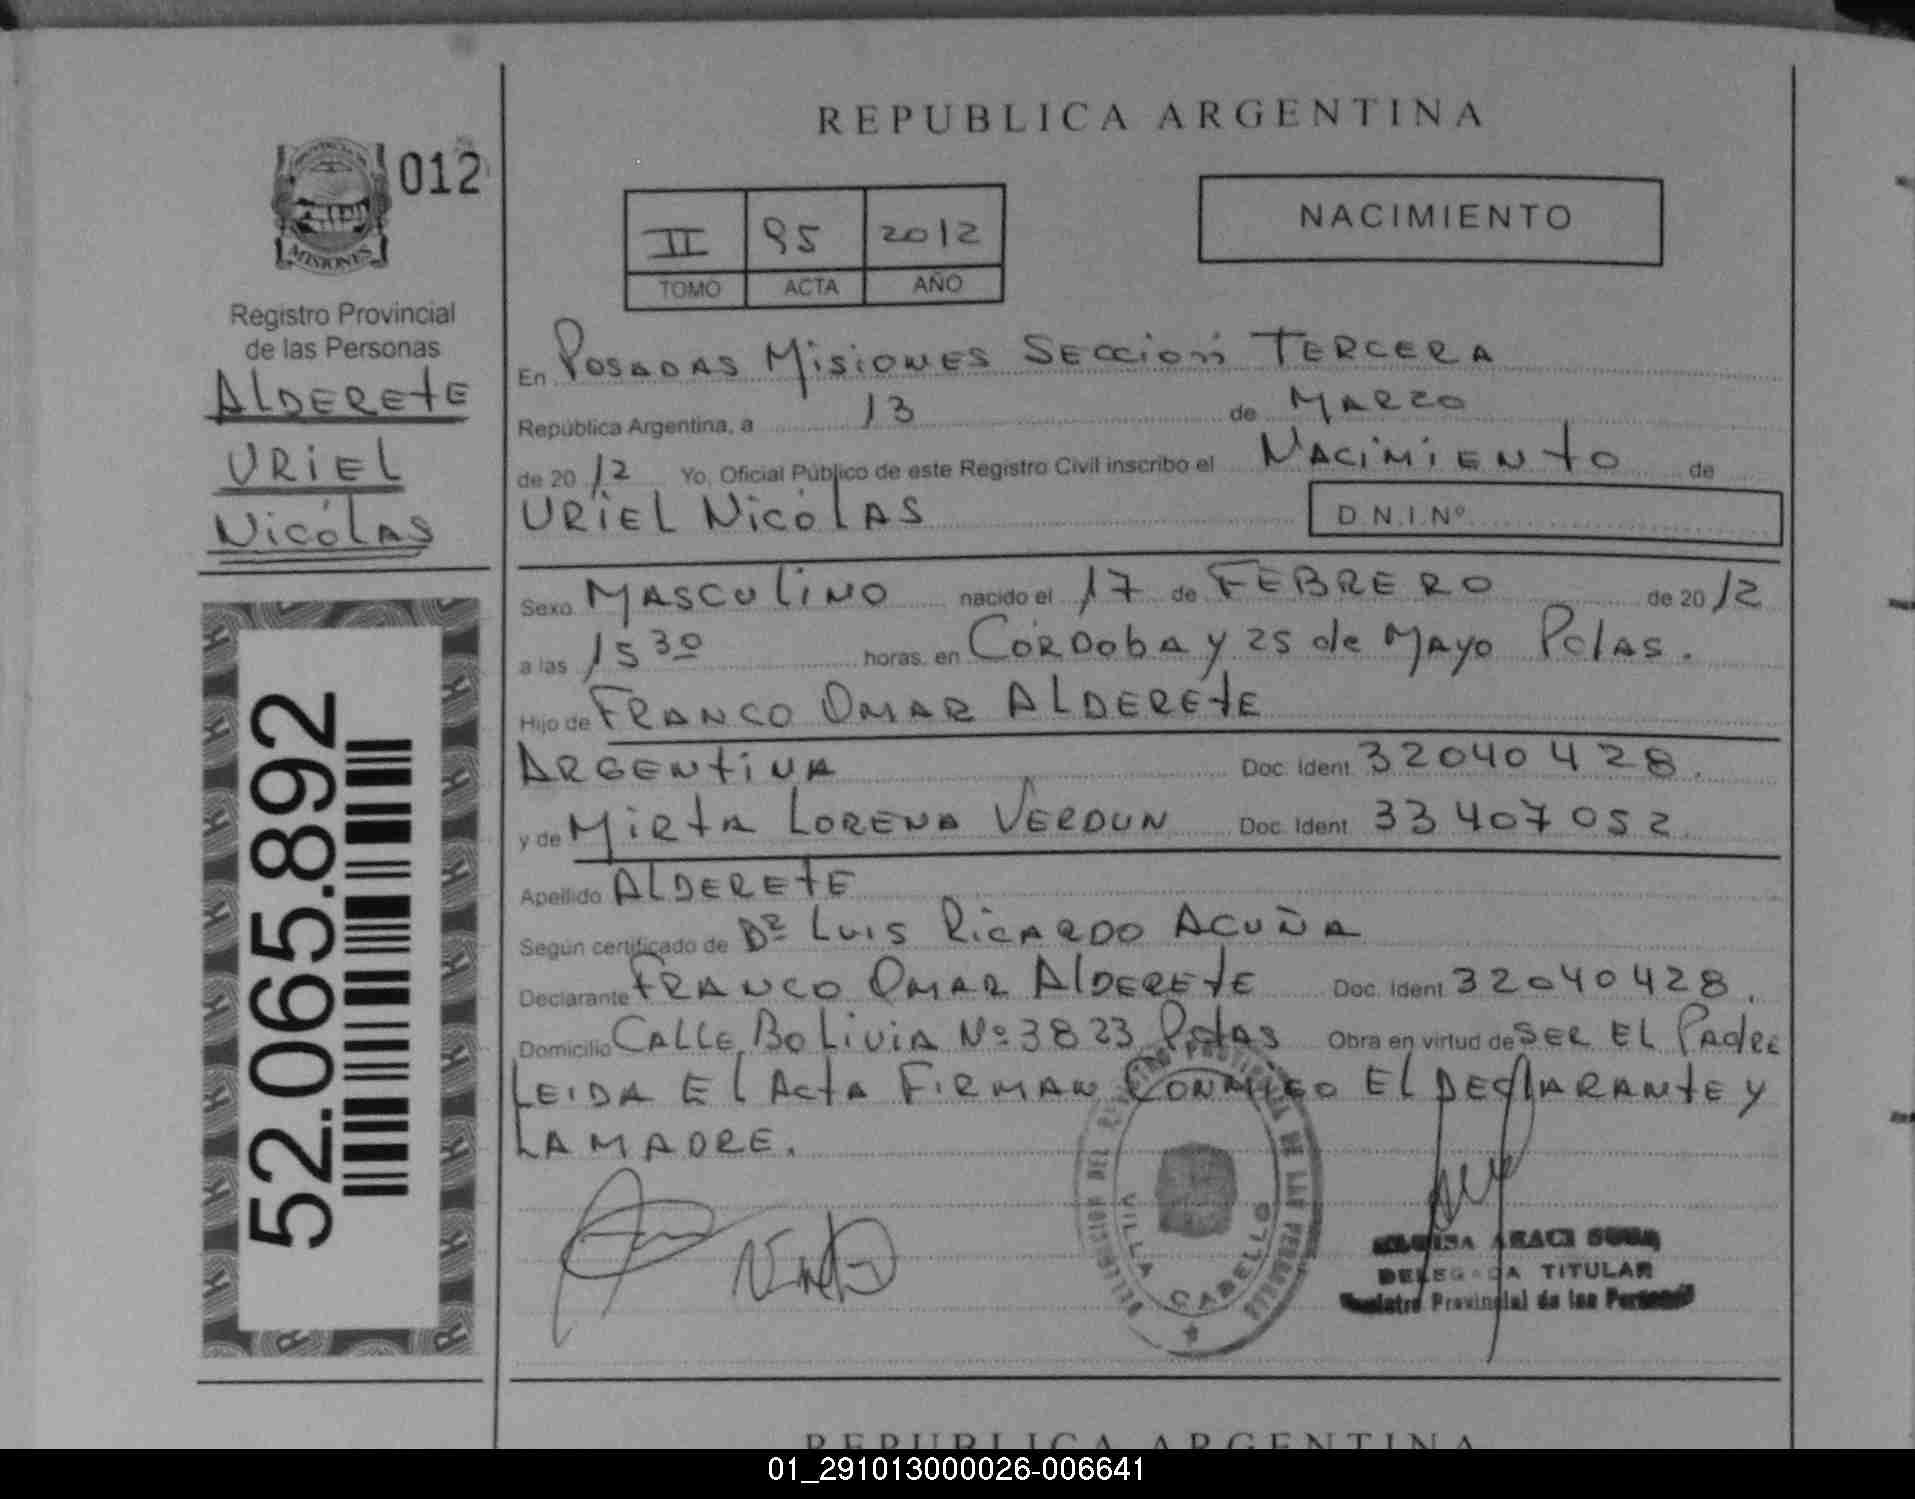 REPUBLICA ARGENTINA
PROVINCIA DE
MISIONES
012
Registro Provincial
de las Personas
ALDERETE
URIEL
NICOLAS
52.065.892
II 95 2012
TOMO ACTA AÑO
NACIMIENTO
En POSADAS MISIONES SECCION TERCERA
República Argentina, a 13 de MARZO
de 2012 Yo, Oficial Público de este Registro Civil inscribo el NACIMIENTO de
URIEL NICOLAS D.N.I.Nº
Sexo MASCULINO nacido el 17 de FEBRERO de 2012
a las 15 30 horas. en CORDOBA Y 25 de MAYO Pdas.
Hijo de FRANCO OMAR ALDERETE
ARGENTINA Doc. Ident. 32040428.
y de MIRTA LORENA VERDUN Doc. Ident. 33407052
Apellido ALDERETE
Según certificado de Dr LUIS RICARDO ACUÑA
Declarante FRANCO OMAR ALDERETE Doc. Ident. 32040428.
Domicilio CALLE BOLIVIA Nº 3823 Pdas Obra en virtud de SER EL PADRE
LEIDA EL ACTA FIRMAN CONMIGO EL DECLARANTE Y
LA MADRE.
VILLA CABELLO
ARACI
DELEGADA TITULAR
Registro Provincial de las Personas
REPUBLICA ARGENTINA
01_291013000026-006641